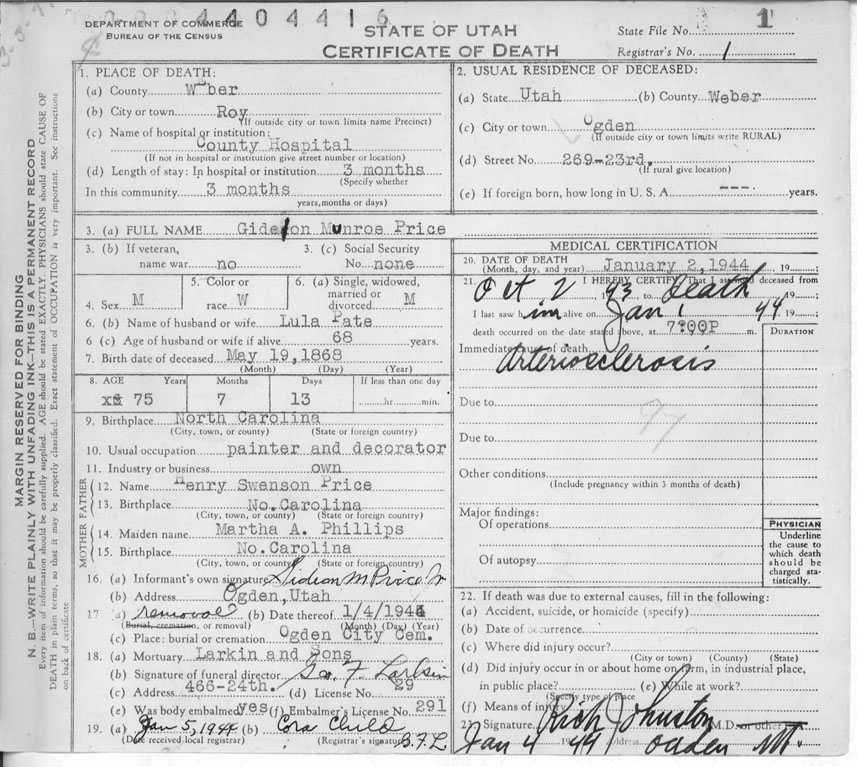 4404416
DEPARTMENT OF COMMERCE
BUREAU OF THE CENSUS
STATE OF UTAH
CERTIFICATE OF DEATH
State File No. 1
Registrar's No. 1
MARGIN RESERVED FOR BINDING
N. B.—WRITE PLAINLY WITH UNFADING INK—THIS IS A PERMANENT RECORD
Every item of information should be carefully supplied. AGE should be stated EXACTLY. PHYSICIANS should state CAUSE OF
DEATH in plain terms, so that it may be properly classified. Exact statement of OCCUPATION is very important. See instructions
on back of certificate
1. PLACE OF DEATH:
(a) County Weber
(b) City or town Roy
(If outside city or town limits name Precinct)
(c) Name of hospital or institution:
County Hospital
(If not in hospital or institution give street number or location)
(d) Length of stay: In hospital or institution 3 months
(Specify whether
In this community 3 months
years, months or days)
2. USUAL RESIDENCE OF DECEASED:
(a) State Utah (b) County Weber
(c) City or town Ogden
(If outside city or town limits write RURAL)
(d) Street No. 269-23rd.
(If rural give location)
(e) If foreign born, how long in U. S. A. --- years.
3. (a) FULL NAME Gideon Munroe Price
3. (b) If veteran, name war no
3. (c) Social Security No. none
4. Sex M
5. Color or race W
6. (a) Single, widowed, married or divorced M
6. (b) Name of husband or wife Lula Pate
6 (c) Age of husband or wife if alive 68 years.
7. Birth date of deceased May 19, 1868
(Month) (Day) (Year)
8. AGE Years Months Days If less than one day
75 7 13 hr. min.
9. Birthplace North Carolina
(City, town, or county) (State or foreign country)
10. Usual occupation painter and decorator
11. Industry or business own
FATHER
12. Name Henry Swenson Price
13. Birthplace No.Carolina
(City, town, or county) (State or foreign country)
MOTHER
14. Maiden name Martha A. Phillips
15. Birthplace No.Carolina
(City, town, or county) (State or foreign country)
16. (a) Informant's own signature Gideon M Price Jr
(b) Address Ogden, Utah
17 (a) removal (b) Date thereof 1/4/1944
(Burial, cremation, or removal) (Month) (Day) (Year)
(c) Place: burial or cremation Ogden City Cem.
18. (a) Mortuary Larkin and Sons
(b) Signature of funeral director Geo. F. Larkin
(c) Address 466-24th. (d) License No. 29
(e) Was body embalmed? yes (f) Embalmer's License No. 291
19. (a) Jan 5, 1944 (b) Cora Child
(Date received local registrar) (Registrar's signature) G.F.L
MEDICAL CERTIFICATION
20. DATE OF DEATH
(Month, day, and year) January 2, 1944 19
21. I HEREBY CERTIFY That I attended deceased from
Oct 2 43 to Death 19
I last saw him alive on Jan 1 44
death occurred on the date stated above, at 7:00P m.
DURATION
Immediate cause of death
Arteriosclerosis
Due to
97
Due to
Other conditions
(Include pregnancy within 3 months of death)
Major findings:
Of operations
Of autopsy
PHYSICIAN
Underline
the cause to
which death
should be
charged sta-
tistically.
22. If death was due to external causes, fill in the following:
(a) Accident, suicide, or homicide (specify)
(b) Date of occurrence
(c) Where did injury occur?
(City or town) (County) (State)
(d) Did injury occur in or about home on farm, in industrial place,
in public place? (e) While at work?
(Specify type of place
(f) Means of injury
23. Signature Rich Johnston M.D. or other
Jan 4 1944 address Ogden Ut.